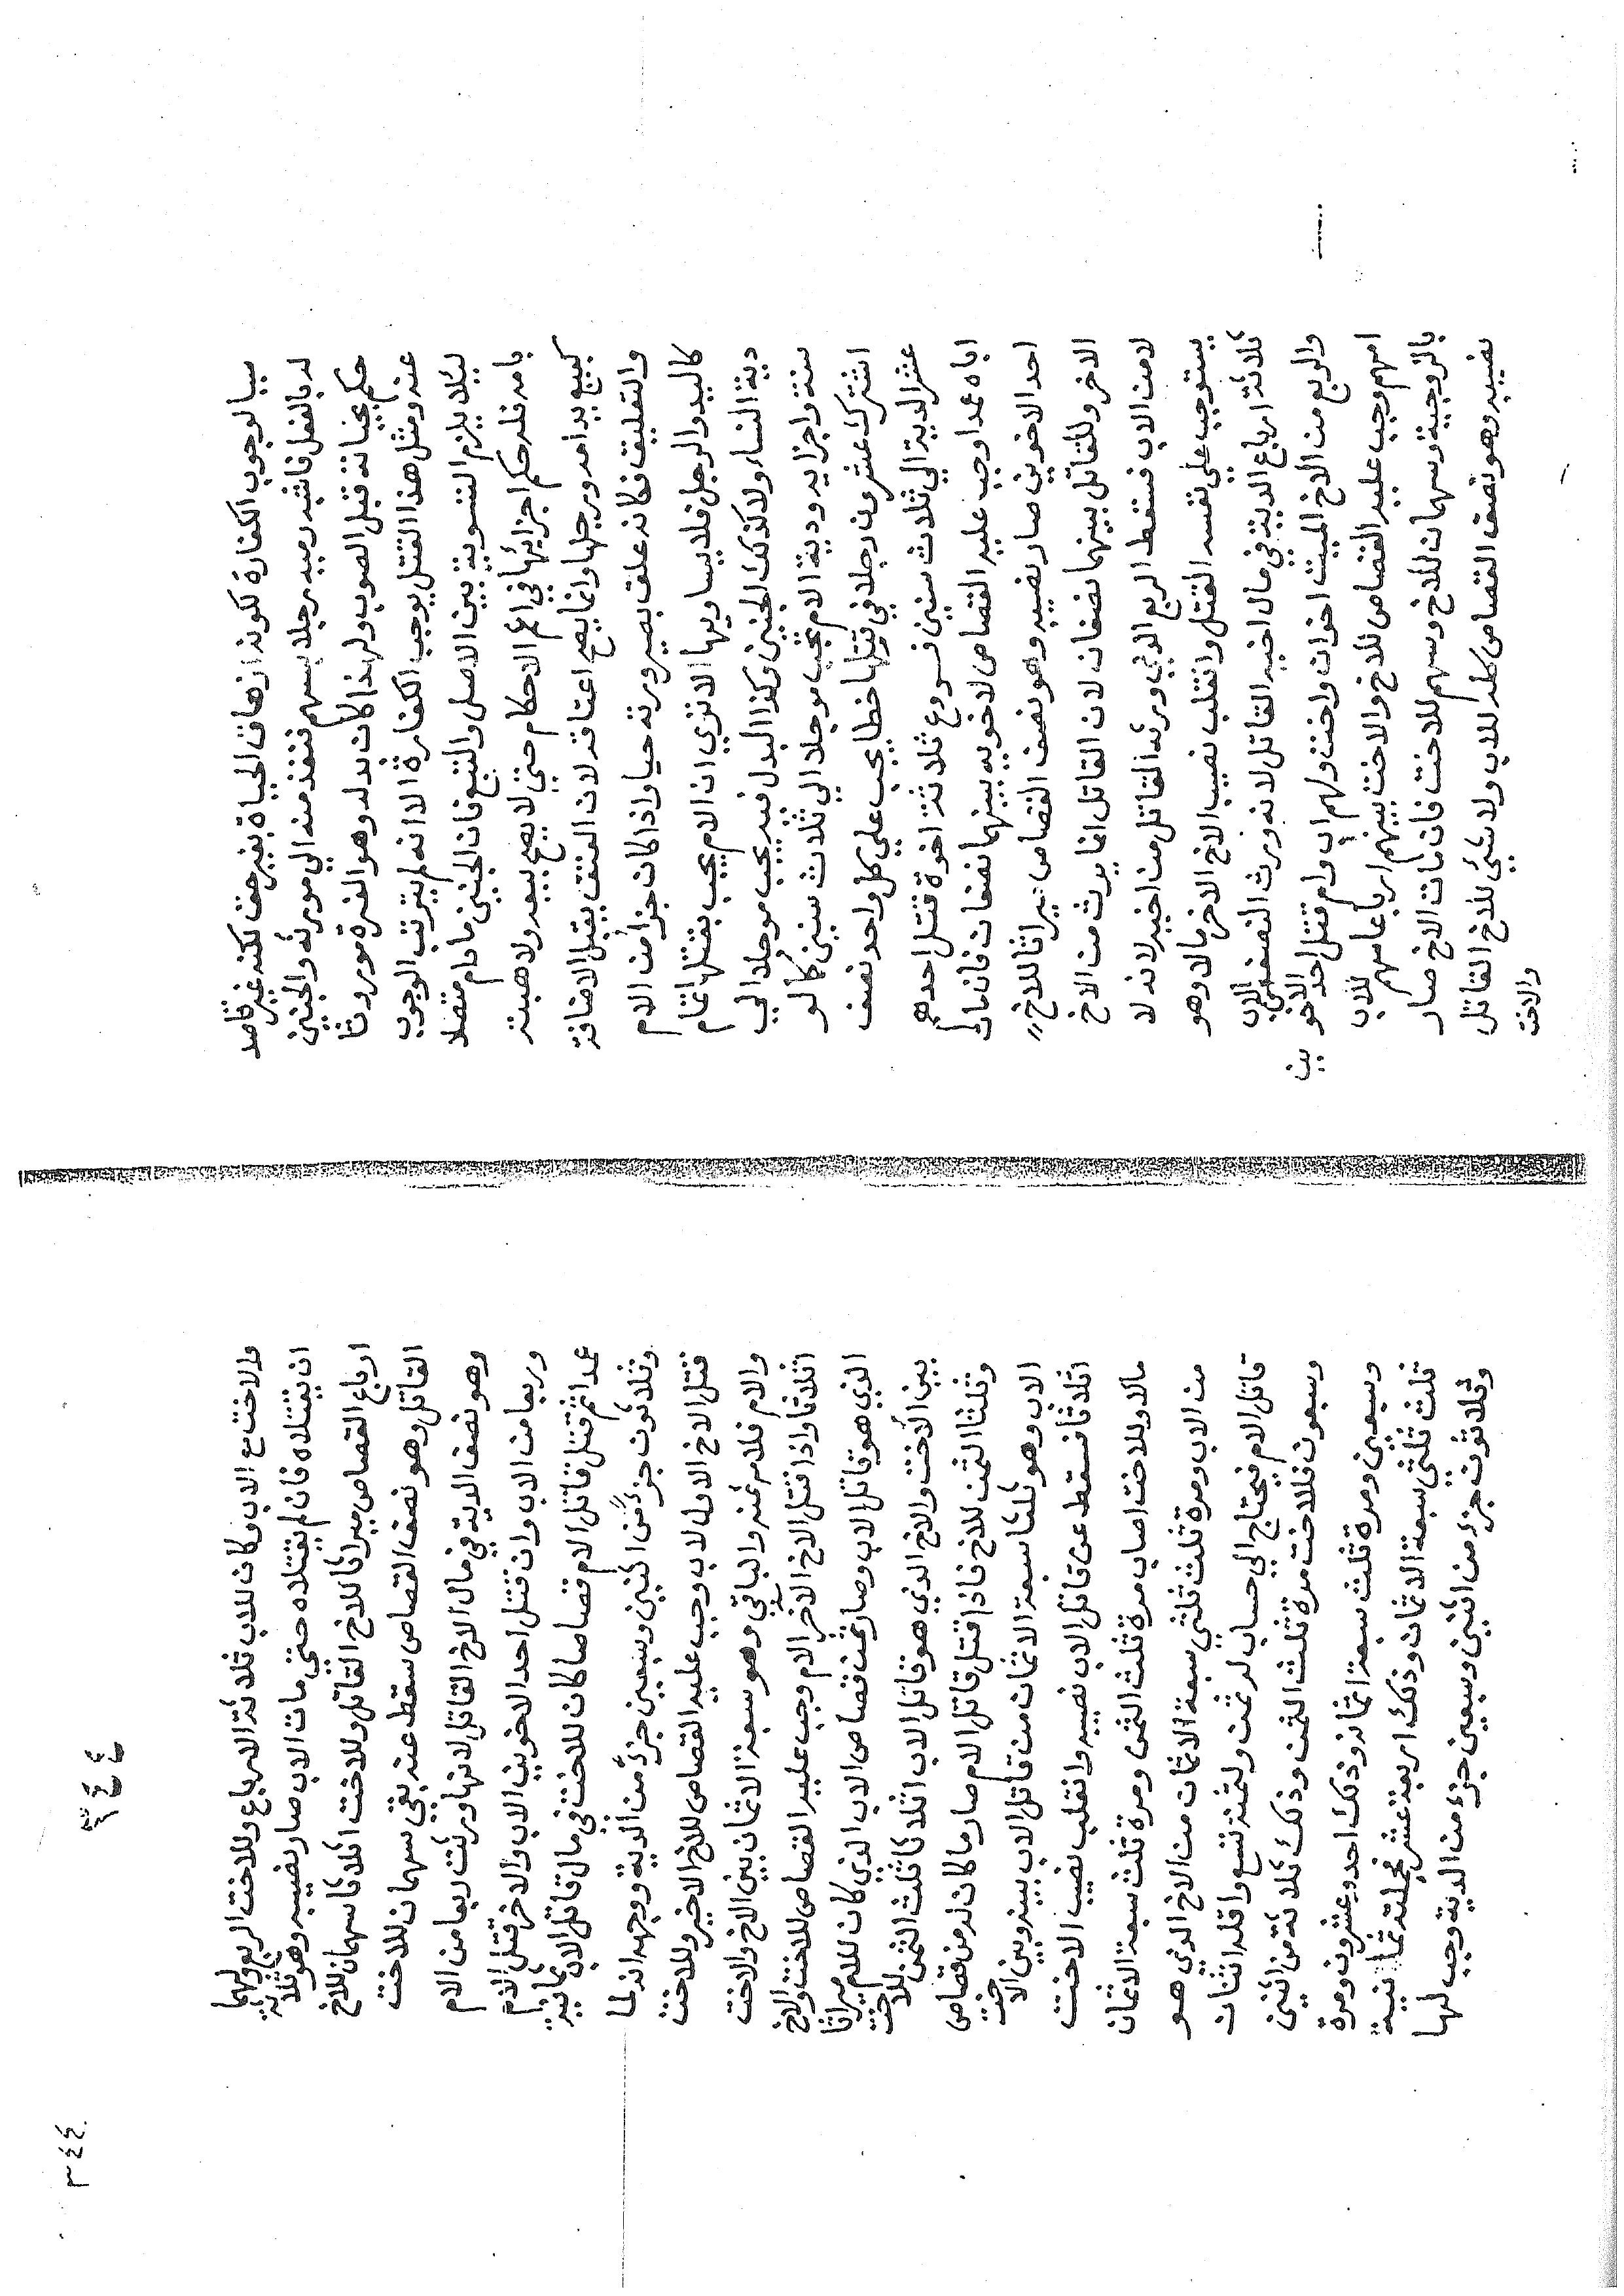 سببا لوجوب الكفارة لكونه ازهاق الحياة بغير حق لكنه غير قاصد
له بالفعل فاشبه رميه رجلا بسهم فنفذ منه الي مورثه والجنين
حكم بجنايته قبل الصوب ولهذا كان بدله وهو الغرة موروثا
عنه ومثل هذا القتل يوجب الكفارة الا انه لم يترتب الوجوب
ليلا يلزم التسوية بين الاصلي والتبع فان الجنين ما دام متصلا
بامه فله حكم اجزائها في اعم الاحكام حتي لا يصح بيعه ولا هبته
كبيع يد امه ورجلها وانما يصح اعتاقه لان العتق يقبل الاضافة
والتعليق فكانه علق بصيرورته حيا واذا كان جزأ من الام
كاليد والرجل فلا يساويها الا تري ان الام يجب بقتلها تمام
دية النساء ولا كذلك الجنين وكذا البدل فيه يجب موجلا الي
سنة واجزايه ودية الام تجب موجلا الي ثلاث سنين كما لو
اشترك عشرون رجلا في قتلها خطا يجب علي كل واحد نصف
عشر الدية الي ثلاث سنين فروع ثلاثة اخوة قتل احدهم
اباه عمدا وجب عليه القصاص لاخويه بينهما نصفان فان مات
احد الاخوين صار نصيبه وهو نصف القصاص ميراثا للاخ
الاخر وللقاتل بينهما نصفان لان القاتل انما يرث من الاخ
لا من الاب فسقط الربع الذي ورثه القاتل من اخيه لانه لا
يستوجب علي نفسه القتل وانقلب نصيب الاخ الاخر مالا وهو
ثلاثة ارباع الدية في مال اخيه القاتل لانه ورث النصف من الاب
والربع من الاخ الميت اخوان واخت ولهم اب وام قتل احد الاخوين
امهم وجب عليه القصاص للاخ والاخت بينهم ارباعا سهم للاب
بالزوجية وسهمان للاخ وسهم للاخت فان مات الاخ صار
نصيبه وهو نصف القصاص كله للاب ولا شيئ للاخ القاتل
والاخت
والاخت مع الاب وكان للاب ثلاثة الارباع وللاخت الربع ولهما
ان يقتلاه فان لم يقتلاه حتى مات الاب صار نصيبه وهو ثلاثة
ارباع القصاص ميراثا للاخ القاتل وللاخت اثلاثا سهمان للاخ
القاتل وهو نصف القصاص سقط عنه بقي سهمان للاخت
وهو نصف الدية في مال الاخ القاتل لانها ورثت ربعا من الام
وربعا من الاب وان قتل احد الاخوين الاب والاخر قتل الام
عمدا ثم قتل قاتل الام قصاصا كان للاخت في مال قاتل الاب ثمانية
وثلاثون جزءً من اثنين وسبعين جزءً من الدية ووجهه انه لما
قتل الاخ الاول الاب وجب عليه القصاص للاخ الاخير وللاخت
والام فللام ثمنه والباقي وهو سبعة الاثمان بين الاخ والاخت
اثلاثا واذا قتل الاخ الاخر الام وجب عليه القصاص للاخت والاخ
الذي هو قاتل الاب وصار ثمن قصاص الاب الذي كان للام ميراثا
بين الاخت والاخ الذي هو قاتل الاب اثلاثا ثلث الثمن للاخت
وثلثا الثمن للاخ فاذا قتل قاتل الام صار ما كان له من قصاص
الاب وهو ثلثا سبعة الاثمان من قاتل الاب بينه وبين الاخت
اثلاثا فسقط عن قاتل الاب نصيبه وانقلب نصيب الاخت
مالا وللاخت اصاب مرة ثلث الثمن ومرة ثلث سبعة الاثمان
من الاب ومرة ثلث ثلثي سبعة الاثمان من الاخ الذي هو
قاتل الام فيحتاج الي حساب له ثمن ولثمنه تسع واقله اثنان
وسبعون فللاخت مرة ثلث الثمن وذلك ثلاثة من اثنين
وسبعين ومرة ثلث سبعة اثمانه وذلك احد وعشرون ومرة
ثلث ثلثي سبعة الاثمان وذلك اربعة عشر فجملته ثمانية
وثلاثون جزء من اثنين وسبعين جزء من الدية وجب لها
٣٤٤
٣٤٤